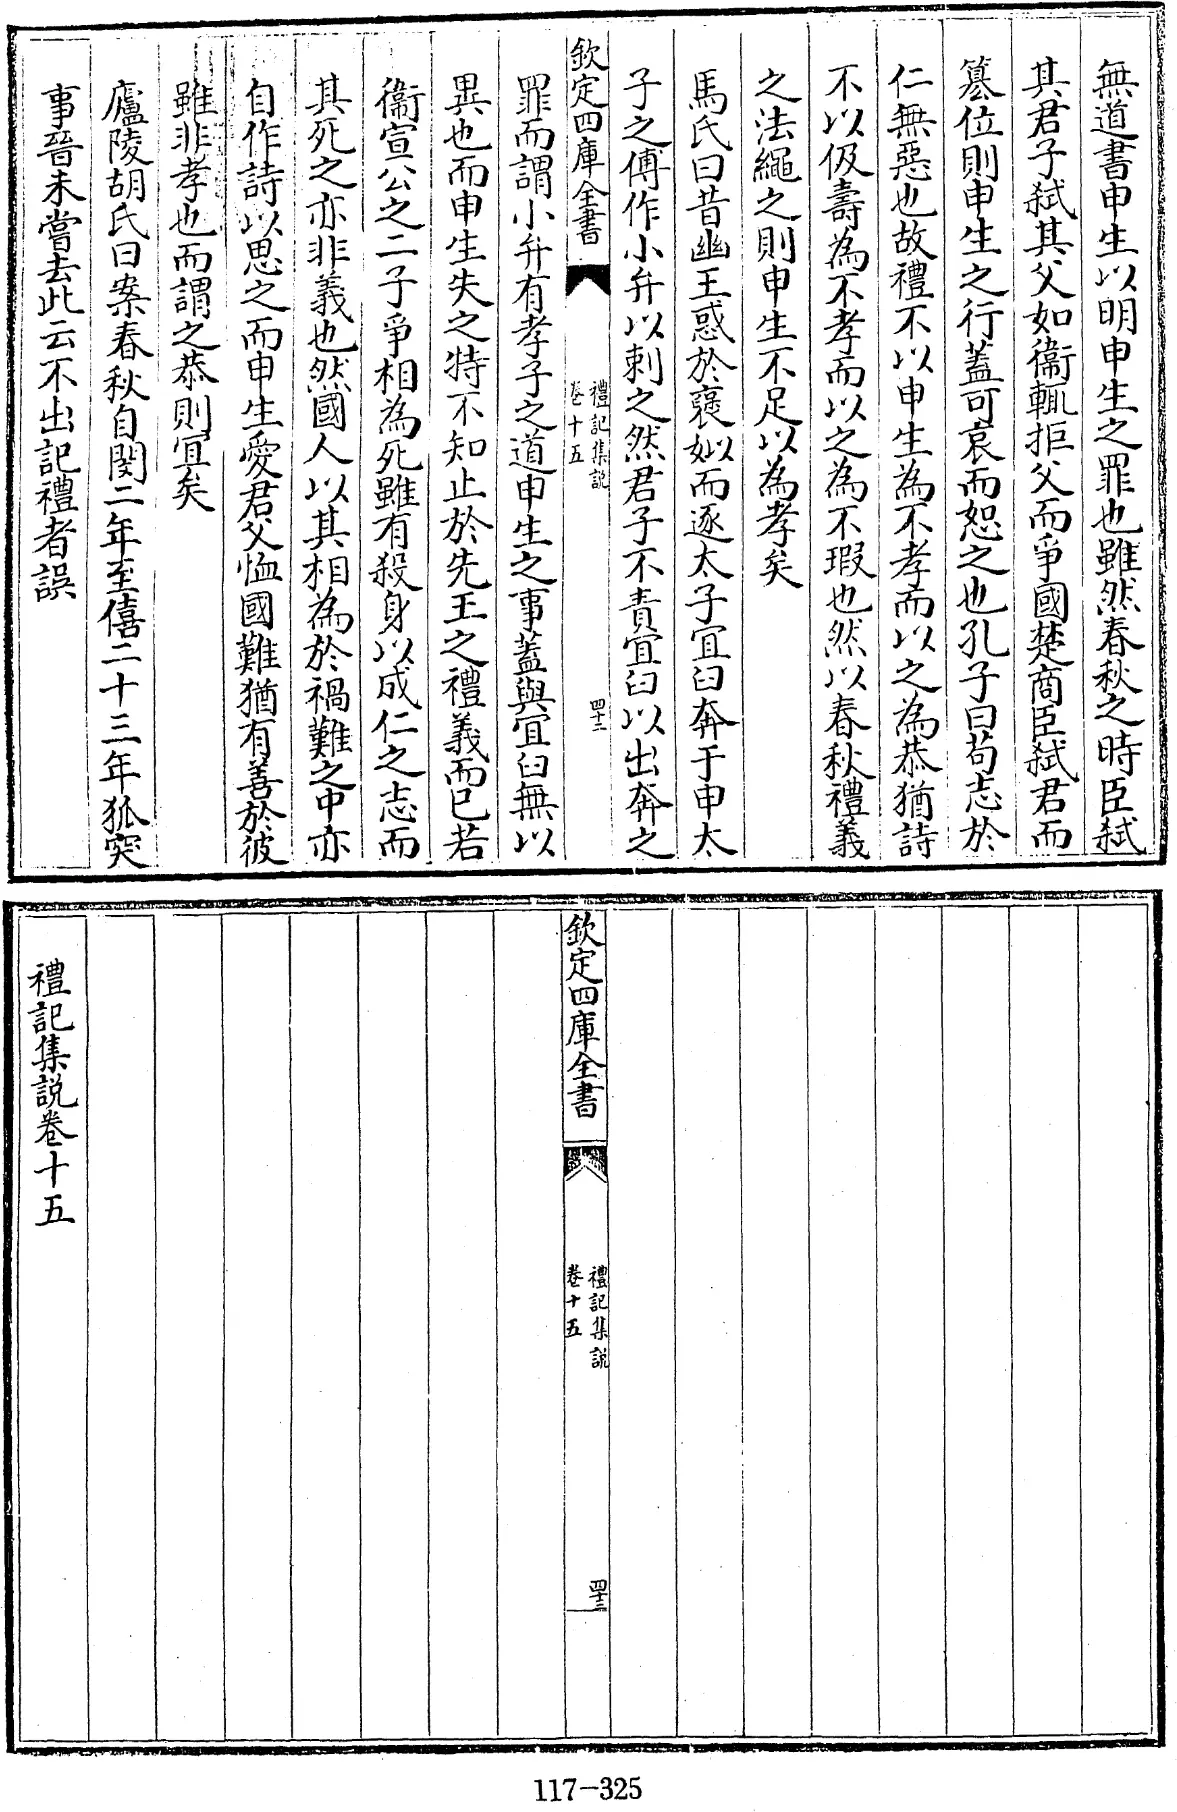 無道書申生以明申生之罪也雖然春秋之時臣弑
其君子弑其父如衞輒拒父而爭國楚商臣弑君而
簒位則申生之行蓋可哀而恕之也孔子曰苟志於
仁無惡也故禮不以申生為不孝而以之為恭猶詩
不以伋壽為不孝而以之為不瑕也然以春秋禮義
之法繩之則申生不足以為孝矣
馬氏曰昔幽王惑於褒姒而逐太子宜臼奔于申太
子之傅作小弁以刺之然君子不責宜臼以出奔之
欽定四庫全書
禮記集說
卷十五
四十二
罪而謂小弁有孝子之道申生之事蓋與宜臼無以
異也而申生失之特不知止於先王之禮義而已若
衞宣公之二子爭相為死雖有殺身以成仁之志而
其死之亦非義也然國人以其相為於禍難之中亦
自作詩以思之而申生愛君父恤國難猶有善於彼
雖非孝也而謂之恭則宜矣
廬陵胡氏曰案春秋自閔二年至僖二十三年狐突
事晉未嘗去此云不出記禮者誤
欽定四庫全書
禮記集說
卷十五
四十三
禮記集說卷十五
117-325